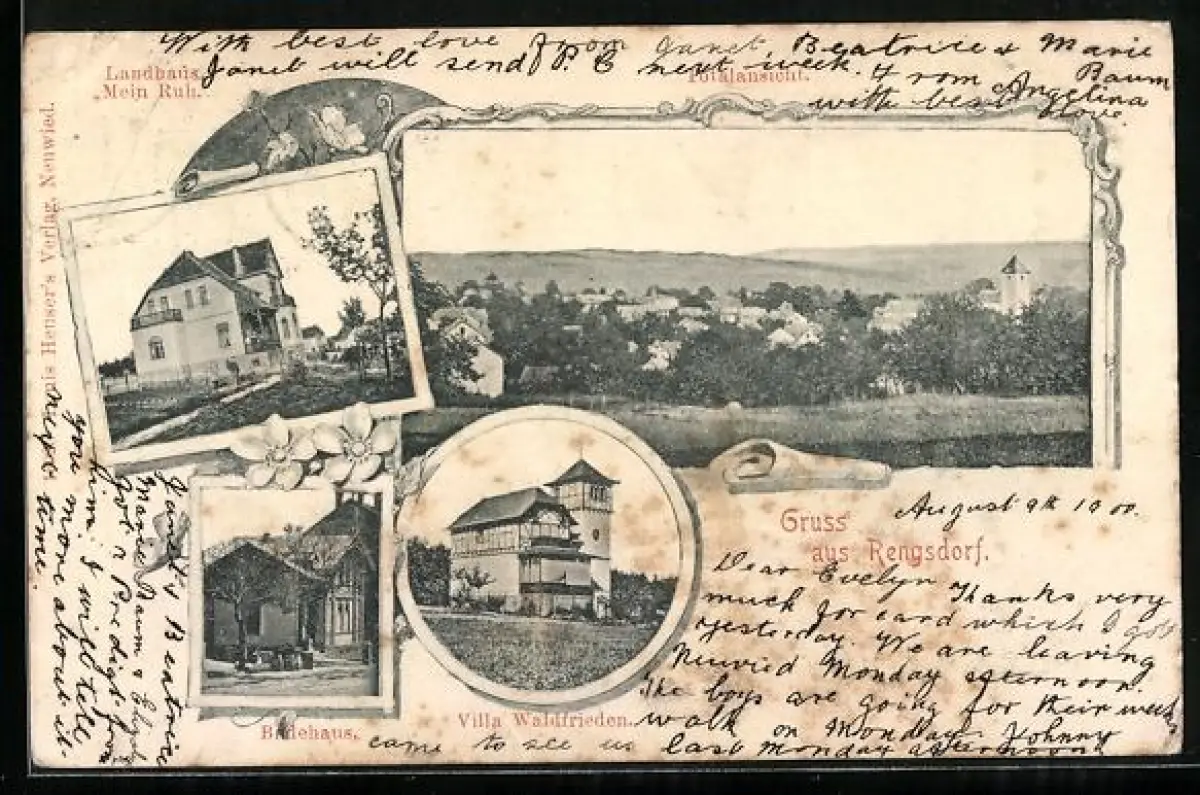 With best love from Janet, Beatrice & Marie
Janet will send P. C next week. & from Baum
Angelina
with best love.
Landhaus
Mein Ruh.
Totalansicht.
Louis Heuser's Verlag, Neuwied.
Gruss
aus Rengsdorf.
August 9th 1900.
Dear Evelyn Thanks very
much for card which I got
yesterday. We are leaving
Neuvied Monday afternoon.
The boys are going for their week
walk on Monday. Johnny
came to see us last Monday afternoon
Villa Waldfrieden.
Badehaus.
Janet's Beatrice
Marie Baum &
got a Predigt from
him. I will tell
you more about it
next time.